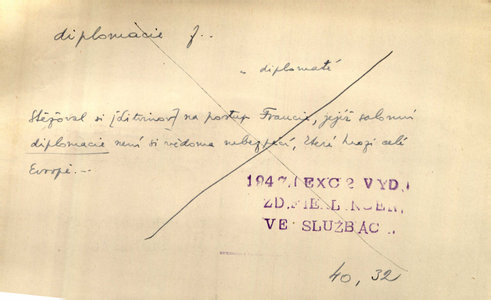 diplomacie f..
diplomaté
Stěžoval si [Litvinov] na postup Francie, jejíž salonní
diplomacie není si vědoma nebezpečí, které hrozí celé
Evropě. –
EXC 2 VYD.
VE SLUŽBÁC
40, 32